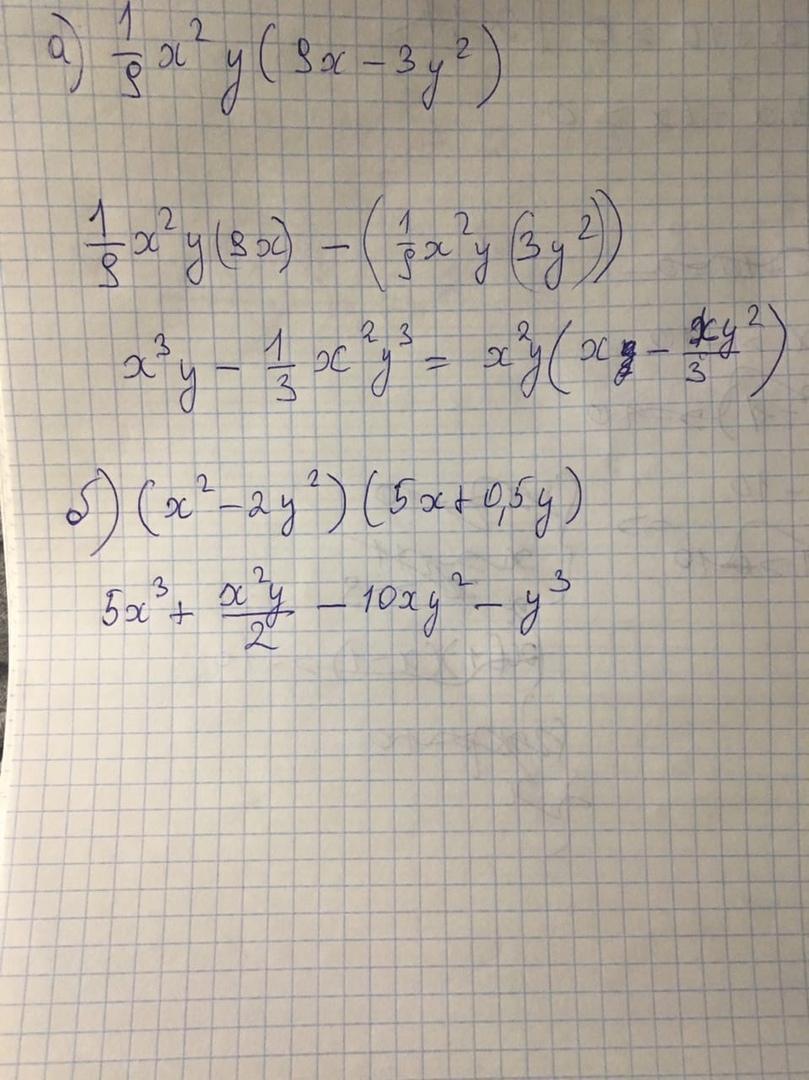 а) 1/9 x² y (9x − 3y²)
1/9 x² y (9x) − (1/9 x² y (3y²))
x³y − 1/3 x²y³ = x²y (x − xy²/3)
б) (x² − 2y²) (5x + 0,5y)
5x³ + x²y/2 − 10xy² − y³